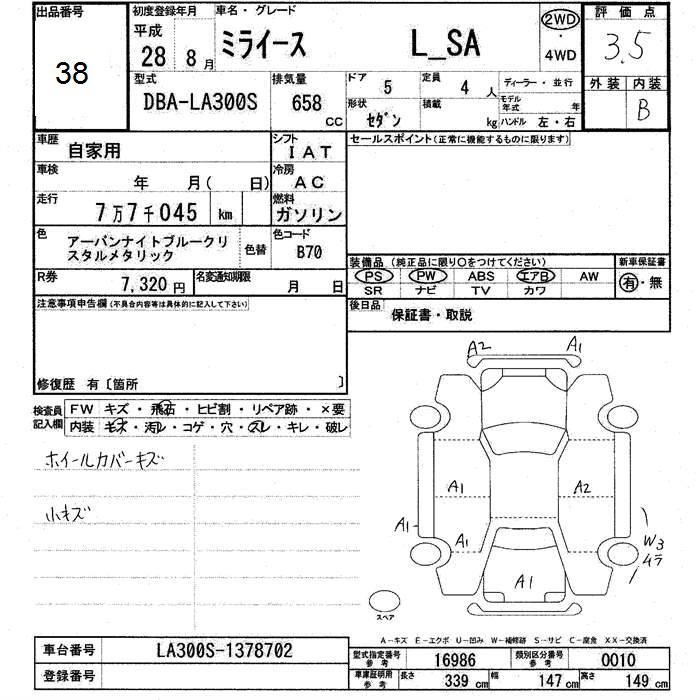 出品番号
38
初度登録年月
平成
28年 8月
車名・グレード
ミライース L_SA
2WD
・
4WD
評価点
3.5
外装 内装
B
型式
DBA-LA300S
排気量
658
CC
ドア
5
定員
4 人
形状
セダン
積載
kg
ディーラー・並行
モデル年式 年
ハンドル 左・右
車歴
自家用
シフト
IAT
セールスポイント(正常に機能するものに限ります)
車検
年 月( 日)
冷房
AC
走行
7万7千045 km
燃料
ガソリン
色
アーバンナイトブルークリ
スタルメタリック
色替
色コード
B70
装備品 (純正品に限り○をつけてください)
PS PW ABS エアB AW
SR ナビ TV カワ
新車保証書
有・無
R券
7,320 円
名変通知期限
月 日
後日品
保証書・取説
注意事項申告欄(不具合内容等は具体的に記入して下さい)
修復歴 有〔箇所 〕
検査員
記入欄
FW キズ・飛石・ヒビ割・リペア跡・×要
内装 キズ・汚レ・コゲ・穴・スレ・キレ・破レ
ホイールカバーキズ
小キズ
A2 A1
A1 A2
A1
A1
W3
4ラ
A1
スペア
A-キズ E-エクボ U-凹み W-補修跡 S-サビ C-腐食 XX-交換済
車台番号
LA300S-1378702
登録番号
型式指定番号
参考
16986
類別区分番号
参考
0010
車庫証明用
参考
長さ 339 cm 幅 147 cm 高さ 149 cm